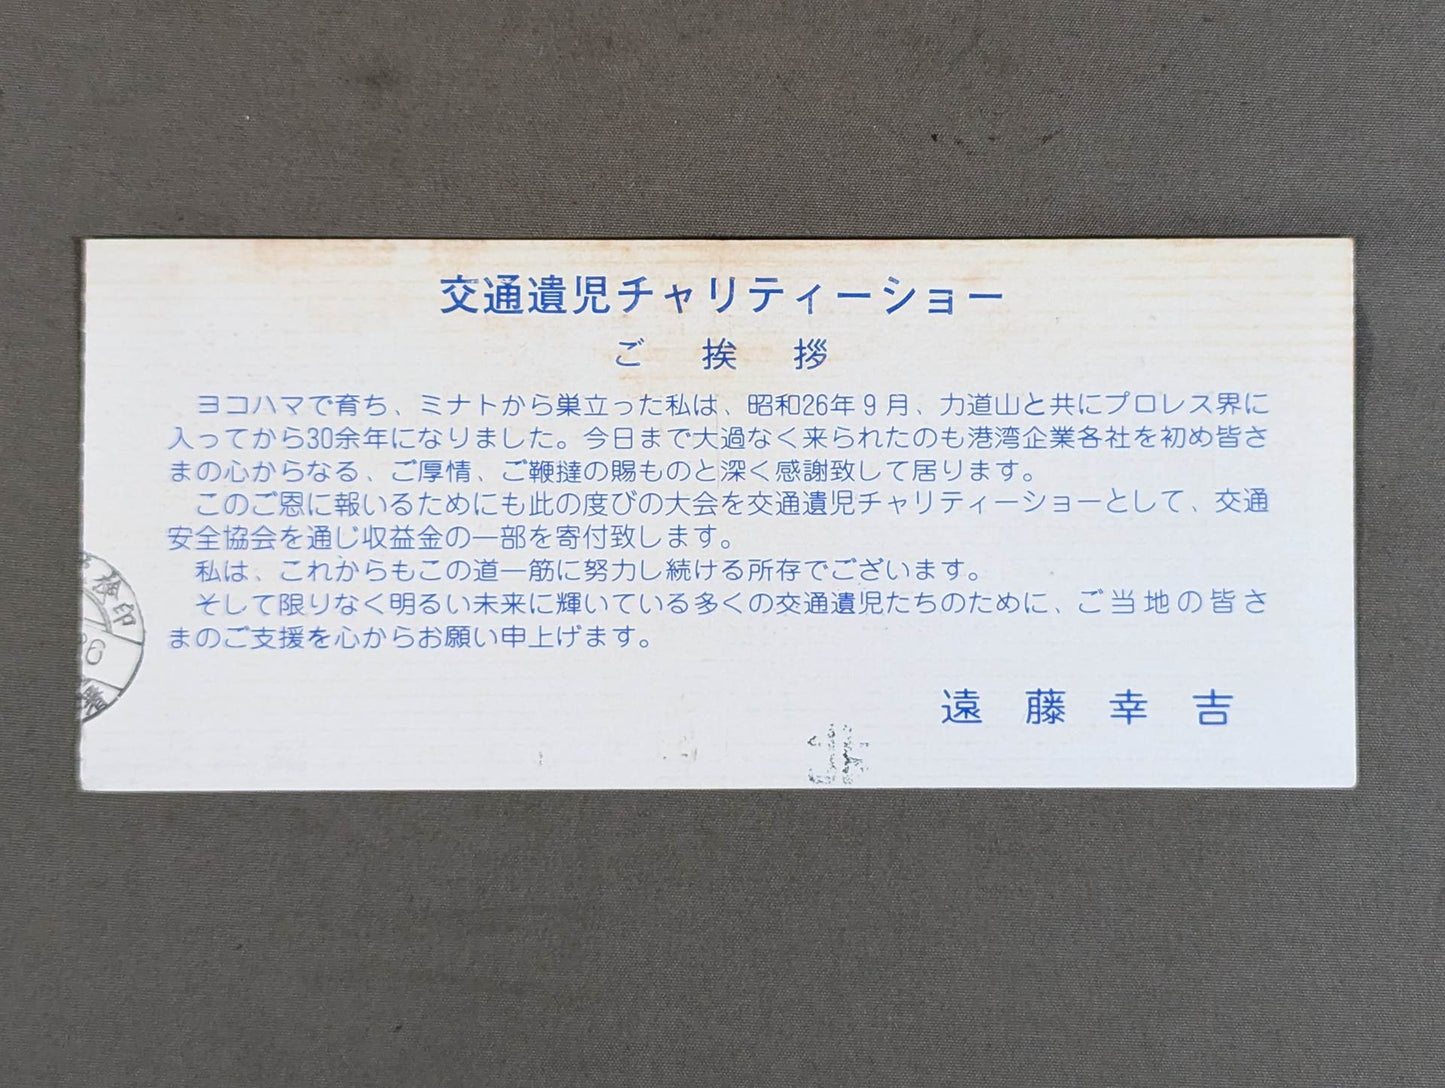 交通遺児チャリティーショー
ご挨拶
ヨコハマで育ち、ミナトから巣立った私は、昭和26年9月、力道山と共にプロレス界に
入ってから30余年になりました。今日まで大過なく来られたのも港湾企業各社を初め皆さ
まの心からなる、ご厚情、ご鞭撻の賜ものと深く感謝致して居ります。
このご恩に報いるためにも此の度びの大会を交通遺児チャリティーショーとして、交通
安全協会を通じ収益金の一部を寄付致します。
私は、これからもこの道一筋に努力し続ける所存でございます。
そして限りなく明るい未来に輝いている多くの交通遺児たちのために、ご当地の皆さ
まのご支援を心からお願い申上げます。
遠藤幸吉
印